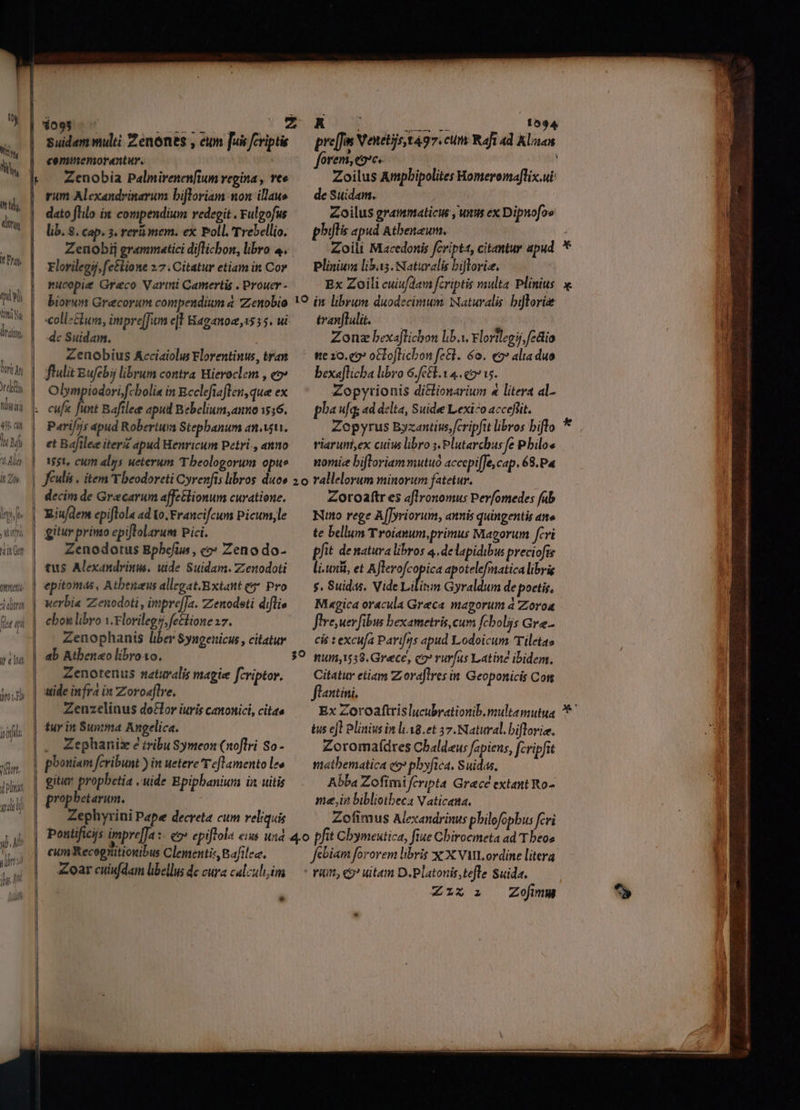 1093 Z
Suidam multi Zenones, cum suis scriptis
commemorantur.
Zenobia Palmirenensium regina, re⸗
rum Alexandrinarum historiam non illau⸗
dato stilo in compendium redegit. Fulgosus
lib. 8. cap. 3. rerũ mem. ex Poll. Trebellio.
Zenobij grammatici distichon, libro 4.
Florilegij, sectione 27. Citatur etiam in Cor
nucopiæ Græco Varini Camertis. Prouer-
biorum Græcorum compendium à Zenobio
collectum, impressum est Haganoæ, 1535. ui
de Suidam.
Zenobius Acciaiolus Florentinus, tran
stulit Eusebij librum contra Hieroclem, &
Olympiodori, scholia in Ecclesiasten, quæ ex
cusæ sunt Basileæ apud Bebelium, anno 1536.
Parisijs apud Robertum Stephanum an. 1511.
et Basileæ iterũ apud Henricum Petri, anno
1551. cum alijs ueterum Theologorum opus⸗
sculis. item Theodoreti Cyrensis libros duo⸗
decim de Græcarum affectionum curatione.
Eiusdem epistola ad Io. Franciscum Picum, le
gitur primo epistolarum Pici.
Zenodotus Ephesius, & Zenodo-
tus Alexandrinus. uide Suidam. Zenodoti
epitomas, Athenæus allegat. Extant & Pro
uerbia Zenodoti, impressa. Zenodoti disti⸗
chon libro 1. Florilegij, sectione 27.
Zenophanis liber Syngenicus, citatur
ab Athenæo libro 10.
Zenotenus naturalis magiæ scriptor.
uide infrà in Zoroastre.
Zenzelinus doctor iuris canonici, cita⸗
tur in Summa Angelica.
Zephaniæ è tribu Symeon (nostri So-
phoniam scribunt) in uetere Testamento le⸗
gitur prophetia. uide Epiphanium in uitis
prophetarum.
Zephyrini Papæ decreta cum reliquis
Pontificijs impressa: & epistola eius unà
cum Recognitionibus Clementis, Basileæ.
Zoar cuiusdam libellus de cura calculi, im
R 1094
pressus Venetijs, 1497. cum Rasi ad Almans
sorem, &c.
Zoilus Amphipolites Homeromastix. ui
de Suidam.
Zoilus grammaticus, unus ex Dipnoso⸗
phistis apud Athenæum.
Zoili Macedonis scripta, citantur apud *
Plinium lib. 15. Naturalis historiæ.
Ex Zoili cuiusdam scriptis multa Plinius *
10 in librum duodecimum Naturalis historiæ
transtulit.
Zonæ hexastichon lib. 1. Florilegij, sectio
ne 20. & octostichon sect. 60. & alia duo
hexasticha libro 6. sect. 14. & 15.
Zopyrionis dictionarium à litera al-
pha usq; ad delta, Suidæ Lexico accessit.
Zopyrus Byzantius, scripsit libros histo *
riarum, ex cuius libro 3. Plutarchus se Philo⸗
nomiæ historiam mutuò accepisse, cap. 68. Pa
20 rallelorum minorum fatetur.
Zoroastres astronomus Persomedes sub
Nino rege Assyriorum, annis quingentis an⸗
te bellum Troianum, primus Magorum scri
psit de natura libros 4. de lapidibus preciosis
li. unũ, et Asteroscopica apotelesmatica libris
5. Suidas. Vide Lilium Gyraldum de poetis.
Magica oracula Græca magorum à Zoroa
stre, uersibus hexametris, cum scholijs Græ-
cis: excusa Parisijs apud Lodoicum Tileta⸗
30 num, 1538. Græcè, & rursus Latinè ibidem.
Citatur etiam Zoroastres in Geoponicis Con
stantini.
Ex Zoroastris lucubrationib. multa mutua *
tus est Plinius in li. 18. et 37. Natural. historiæ.
Zoromasdres Chaldæus sapiens, scripsit
mathematica & physica. Suidas.
Abba Zosimi scripta Græcè extant Ro-
mæ, in bibliotheca Vaticana.
Zosimus Alexandrinus philosophus scri
40 psit Chymeutica, siue Chirocmeta ad Theo⸗
sebiam sororem libris XXVIII. ordine litera
rum, & uitam D. Platonis, teste Suida.
ZZZ 2 Zosimus